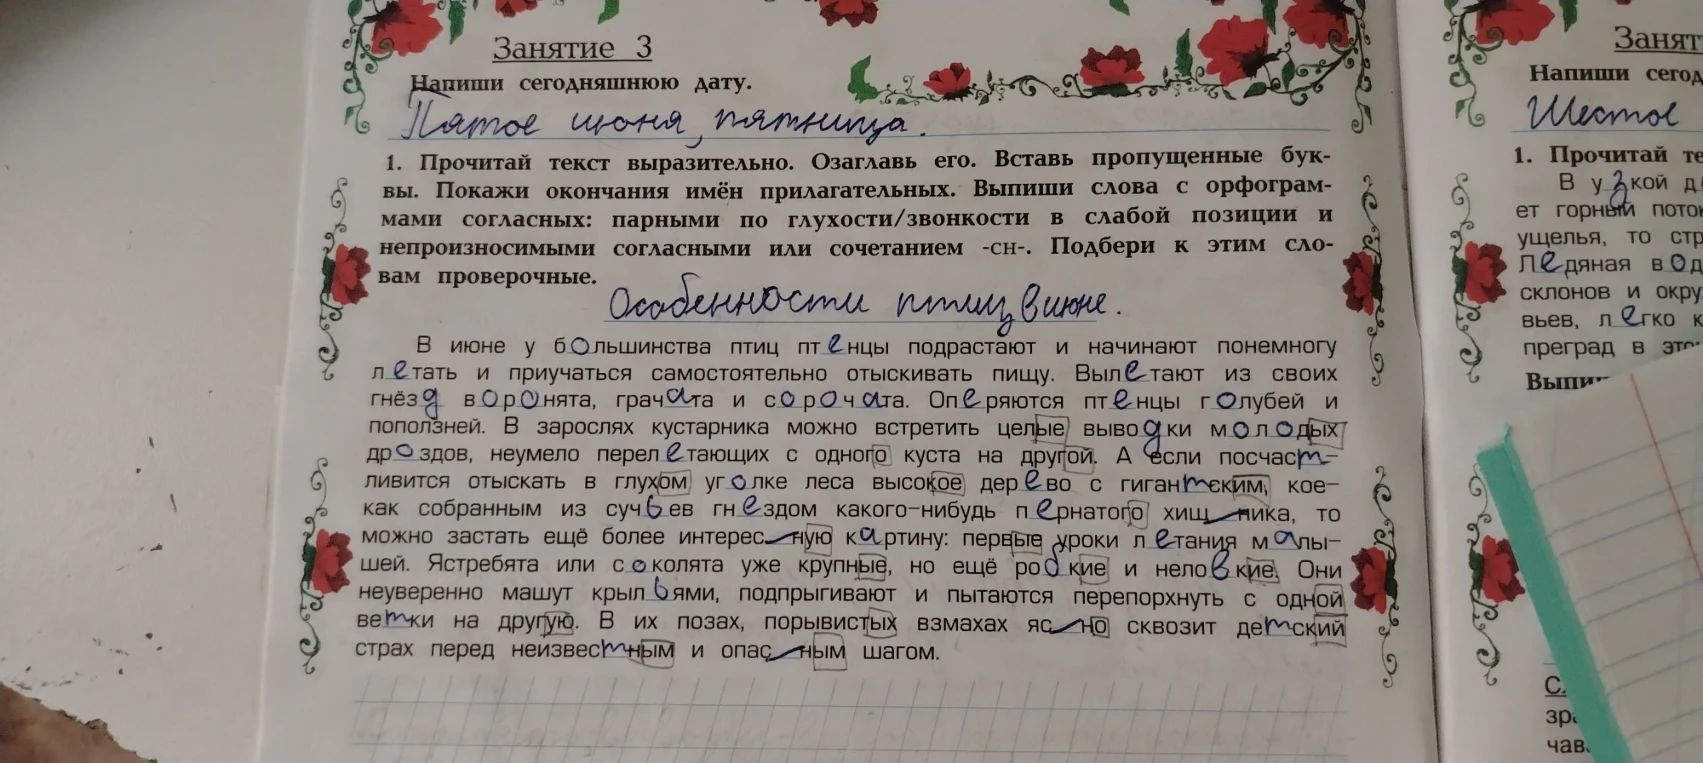 Занятие 3
Напиши сегодняшнюю дату.
Пятое июня, пятница.
1. Прочитай текст выразительно. Озаглавь его. Вставь пропущенные бук-
вы. Покажи окончания имён прилагательных. Выпиши слова с орфограм-
мами согласных: парными по глухости/звонкости в слабой позиции и
непроизносимыми согласными или сочетанием -сн-. Подбери к этим сло-
вам проверочные.
Особенности птиц в июне.
В июне у большинства птиц птенцы подрастают и начинают понемногу
летать и приучаться самостоятельно отыскивать пищу. Вылетают из своих
гнёзд воронята, грачата и сорочата. Оперяются птенцы голубей и
поползней. В зарослях кустарника можно встретить целые выводки молодых
дроздов, неумело перелетающих с одного куста на другой. А если посчаст-
ливится отыскать в глухом уголке леса высокое дерево с гигантским, кое-
как собранным из сучьев гнездом какого-нибудь пернатого хищника, то
можно застать ещё более интересную картину: первые уроки летания малы-
шей. Ястребята или соколята уже крупные, но ещё робкие и неловкие. Они
неуверенно машут крыльями, подпрыгивают и пытаются перепорхнуть с одной
ветки на другую. В их позах, порывистых взмахах ясно сквозит детский
страх перед неизвестным и опасным шагом.
Занят
Напиши сегод
Шестое
1. Прочитай те
В узкой д
ет горный поток
ущелья, то стр
Ледяная вод
склонов и окру
вьев, легко к
преград в это
Выпи
зр
чав